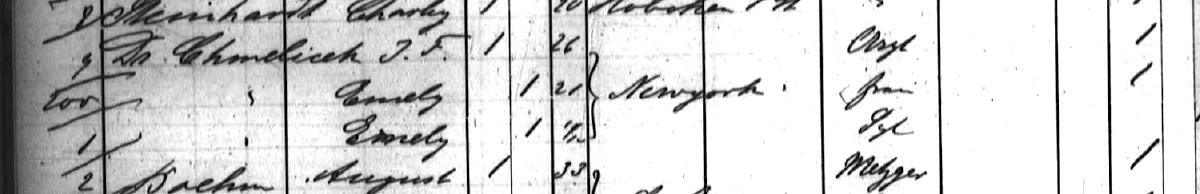 8 Meinhardt Charley 1 20 Hoboken
9 Dr. Chmelicek J. F. 1 26 Arzt 1
200 " Emely 1 21 Newyork. frau 1
1 " Emely 1
2 Boehm August 1 33 Metzger 1